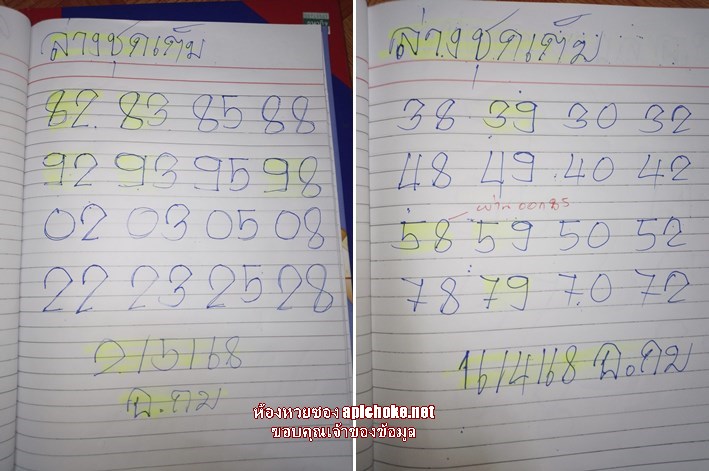 ล่างชุดเต็ม
82 83 85 88
92 93 95 98
02 03 05 08
22 23 25 28
2/5/68
อ.ถม
ล่างชุดเต็ม
38 39 30 32
48 49 40 42
58 59 50 52
78 79 70 72
16/4/68 อ.ถม
ห้องหวยซอง apichoke.net
ขอบคุณเจ้าของข้อมูล